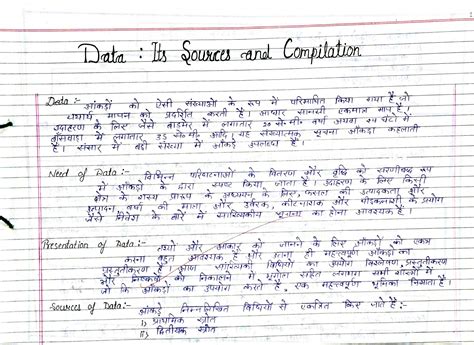 Data : Its Sources and Compilation
Data :- आंकड़ों को ऐसी संख्याओं के रूप में परिभाषित किया गया है जो
यथार्थ मापन को प्रदर्शित करती है। आधार सामग्री एकमात्र माप है।
उदाहरण के लिए जैसे बाड़मेर में लगातार 20 से.मी. वर्षा अथवा घंटे में
बाँसवाड़ा में लगातार 35 से.मी. आदि। यह संख्यात्मक सूचना आंकड़ा कहलाती
है। संसार में बड़ी संख्या में आंकड़े उपलब्ध है।
Need of Data:- विभिन्न परिघटनाओं के वितरण और वृद्धि को सारणीबद्ध रूप
में आंकड़ों के द्वारा स्पष्ट किया जाता है। उदाहरण के लिए किसी
क्षेत्र के शस्य प्रारूप के अध्ययन के लिए, फसल की उत्पादकता और
उत्पादन वर्षा की मात्रा और उर्वरक, कीटनाशक और के प्रयोग
जैसे निवेश के बारे में सांख्यिकीय सूचना का होना आवश्यक है।
Presentation of Data:- तथ्यों और आकार को जानने के लिए आंकड़ों को एकत्र
करना बहुत आवश्यक है और इतना ही महत्वपूर्ण आंकड़ों का
प्रस्तुतीकरण है। आज सांख्यिकी विधियों का उपयोग विश्लेषण, प्रस्तुतीकरण
और निष्कर्षों को निकालने में, भूगोल सहित लगभग सभी शास्त्रों में
जो कि आंकड़ों का उपयोग करते है, एक महत्वपूर्ण भूमिका निभाता है।
Sources of Data:- आंकड़े निम्नलिखित विधियों से एकत्रित किए जाते है:-
i) प्राथमिक स्रोत
ii) द्वितीयक स्रोत